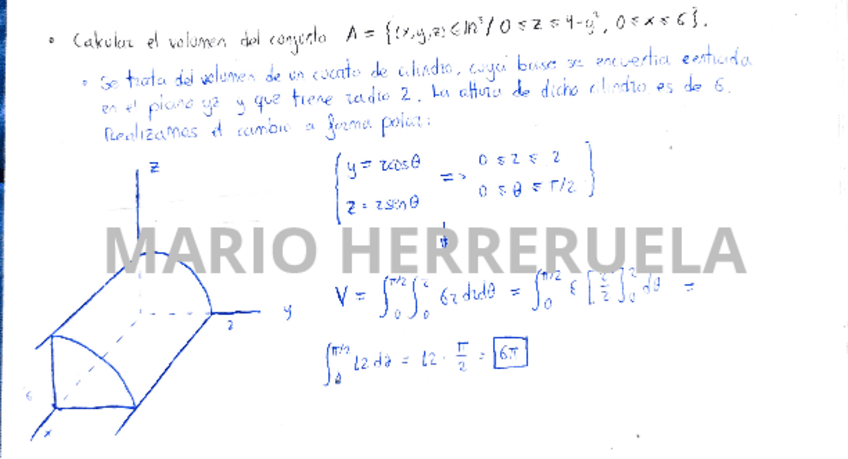 • Calcular el volumen del conjunto A = {(x,y,z) ∈ ℝ³ / 0 ≤ z ≤ 4-y², 0 ≤ x ≤ 6}.
• Se trata del volumen de un cuarto de cilindro, cuya base se encuentra centrada
en el plano yz y que tiene radio 2. La altura de dicho cilindro es de 6.
Realizamos el cambio a forma polar:
z
{ y = r cos θ => 0 ≤ r ≤ 2
z = r sen θ 0 ≤ θ ≤ π/2 }
MARIO HERRERUELA
V = ∫₀^{π/2} ∫₀² 6r dr dθ = ∫₀^{π/2} 6 [r²/2]₀² dθ =
y
2
∫₀^{π/2} 12 dθ = 12 · π/2 = 6π
6
x